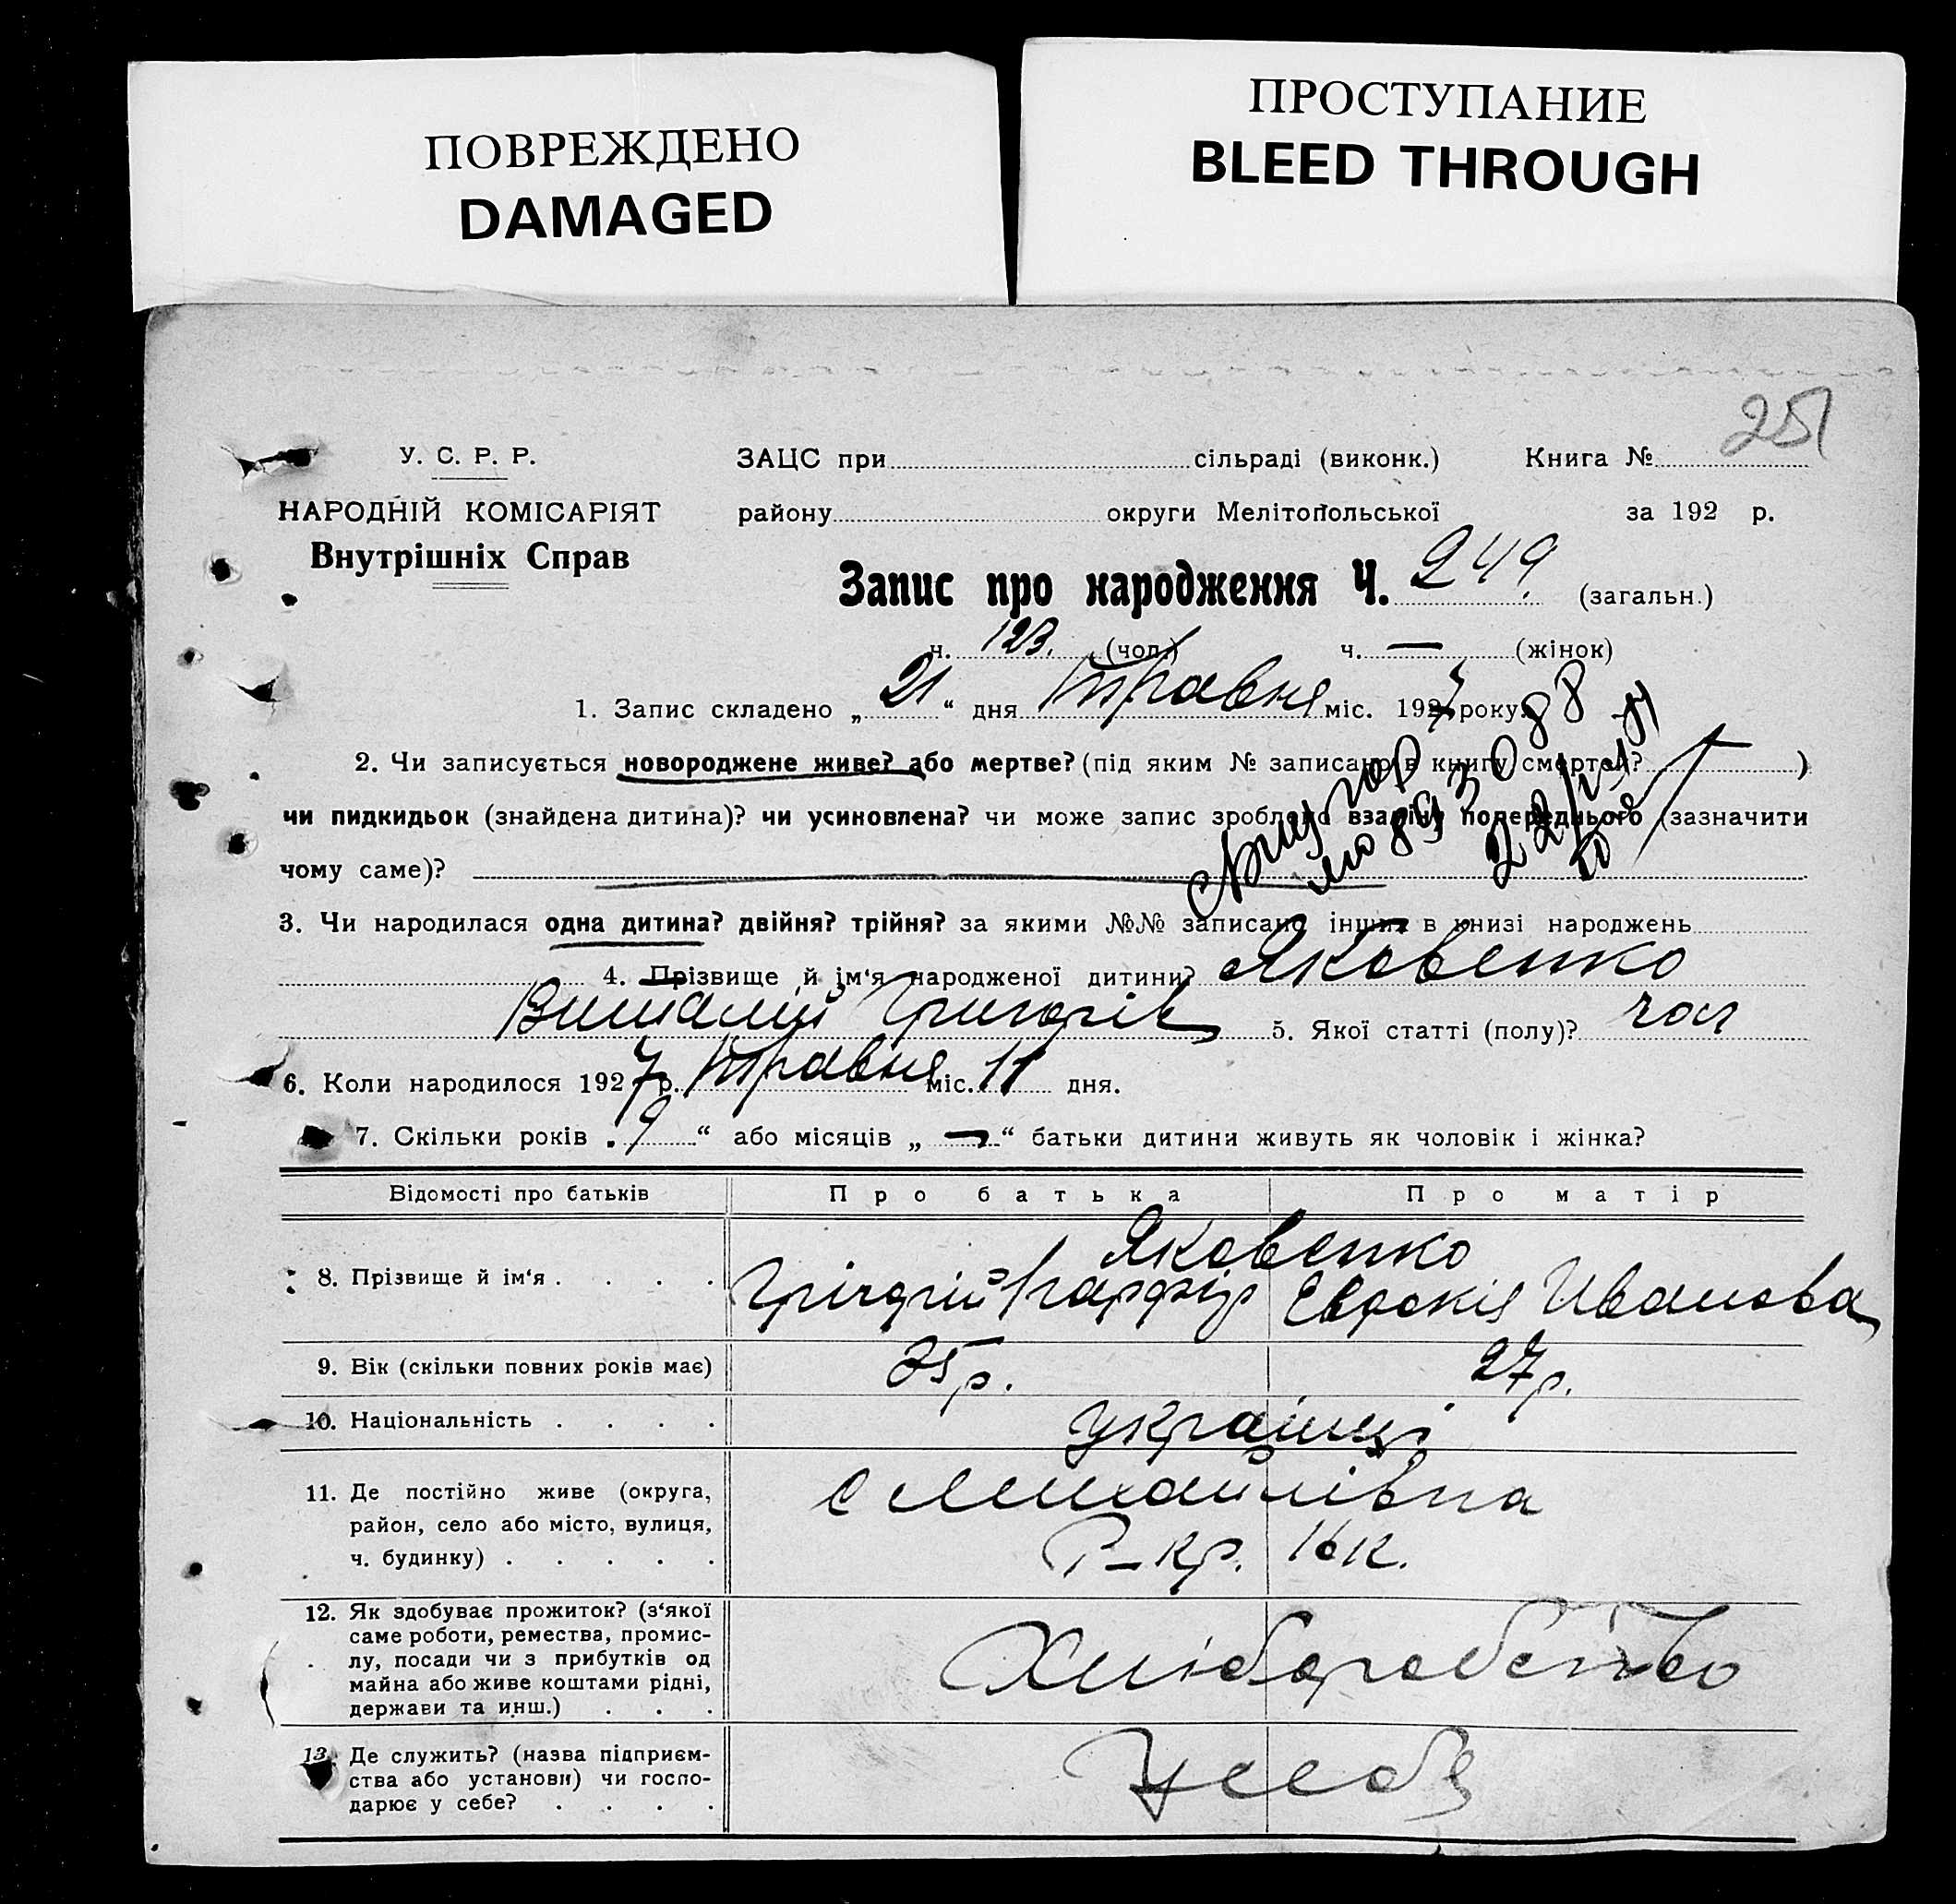 ПОВРЕЖДЕНО
DAMAGED
ПРОСТУПАНИЕ
BLEED THROUGH
251
У. С. Р. Р. ЗАЦС при сільраді (виконк.) Книга №
НАРОДНІЙ КОМІСАРІЯТ району округи Мелітопольської за 192 р.
Внутрішніх Справ
Запис про народження Ч. 249. (загальн.)
ч. 123. (чол.) ч. — (жінок)
1. Запис складено „ 21 “ дня Травня міс. 1927 року.
2. Чи записується новороджене живе? або мертве? (під яким № записано в книгу смертей? )
чи пидкидьок (знайдена дитина)? чи усиновлена? чи може запис зроблено взамін попереднього (зазначити
чому саме)?
3. Чи народилася одна дитина? двійня? трійня? за якими №№ записано інших в книзі народжень
4. Прізвище й ім‘я народженої дитини? Яковенко
Виталий Григорів 5. Якої статті (полу)? чол
6. Коли народилося 1927 р. Травня міс. 11 дня.
7. Скільки років „ 9 “ або місяців „ — “ батьки дитини живуть як чоловік і жінка?
Відомості про батьків Про батька Про матір
Яковенко
8. Прізвище й ім‘я . . . . Грігорій Парфір Евдокія Иванова
9. Вік (скільки повних років має) 35 р. 27 р.
10. Національність . . . . українці
11. Де постійно живе (округа, с Михайлівка
район, село або місто, вулиця,
ч. будинку) . . . . . Р-кр. 16 к.
12. Як здобуває прожиток? (з‘якої
саме роботи, ремества, промис-
лу, посади чи з прибутків од Хліборобство
майна або живе коштами рідні,
держави та инш.) . . .
13. Де служить? (назва підприєм-
ства або установи) чи госпо- У себя
дарює у себе? . . . .